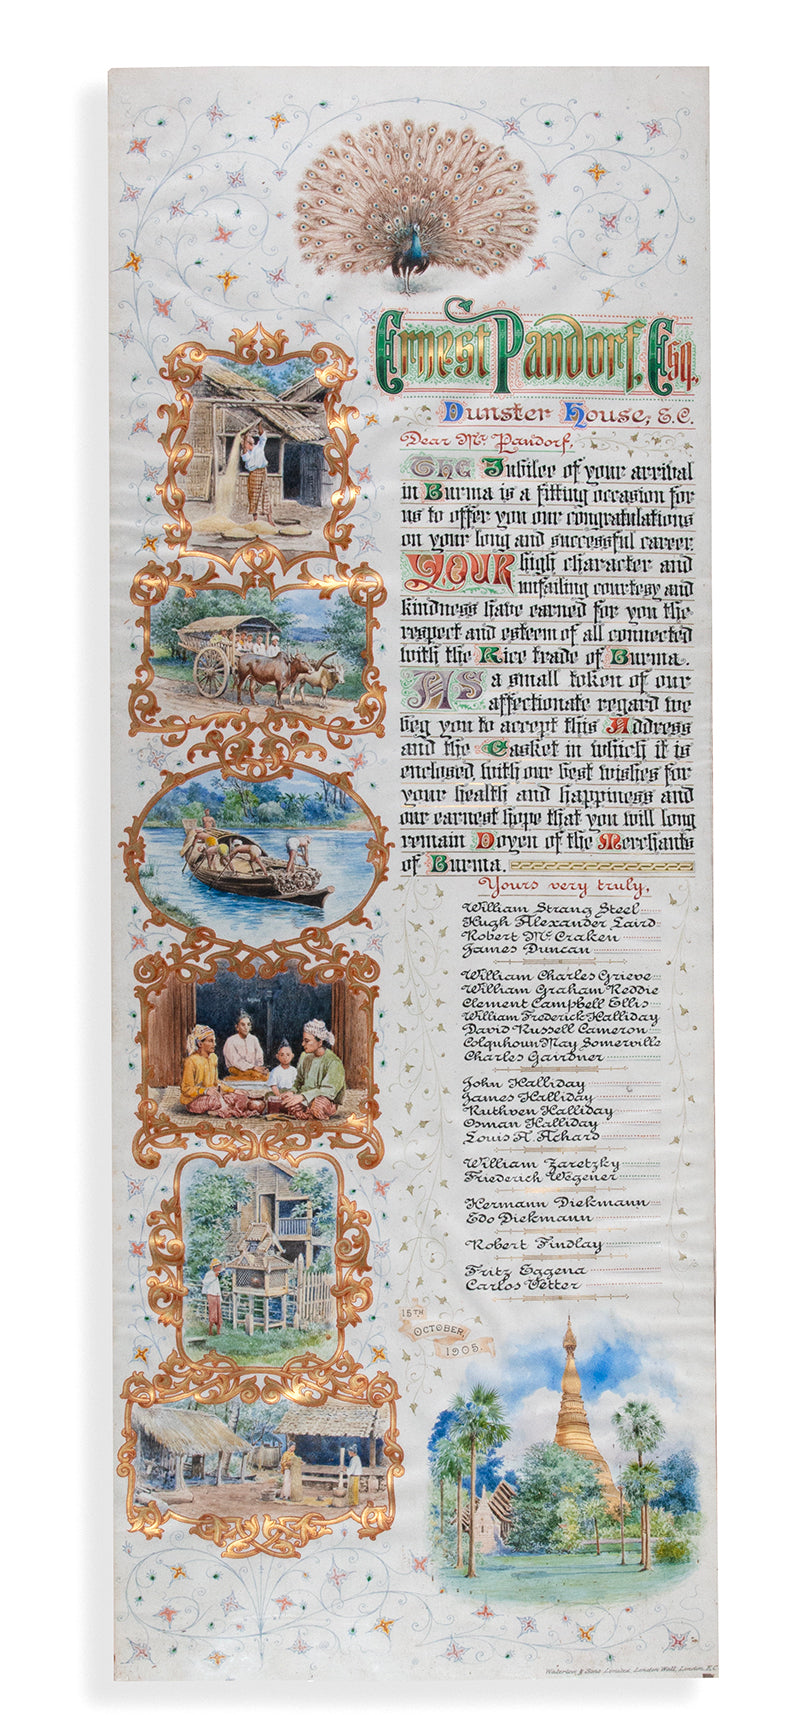 Ernest Pandorf, Esq.,
Dunster House, E.C.
Dear Mr. Pandorf,
The Jubilee of your arrival
in Burma is a fitting occasion for
us to offer you our congratulations
on your long and successful career.
Your high character and
unfailing courtesy and
kindness have earned for you the
respect and esteem of all connected
with the Rice trade of Burma.
As a small token of our
affectionate regard we
beg you to accept this Address
and the Casket in which it is
enclosed with our best wishes for
your health and happiness and
our earnest hope that you will long
remain Doyen of the Merchants
of Burma.
Yours very truly,
William Strang Steel
Hugh Alexander Laird
Robert McCraken
James Duncan
William Charles Grieve
William Graham Reddie
Clement Campbell Ellis
William Frederick Halliday
David Russell Cameron
Colquhoun May Somerville
Charles Gairdner
John Halliday
James Halliday
Ruthven Halliday
Osman Halliday
Louis A. Achard
William Zaretzky
Friederich Wegener
Hermann Diekmann
Edo Diekmann
Robert Findlay
Fritz Eggena
Carlos Vetter
15TH
OCTOBER,
1905.
Waterlow & Sons Limited, London Wall, London, E.C.